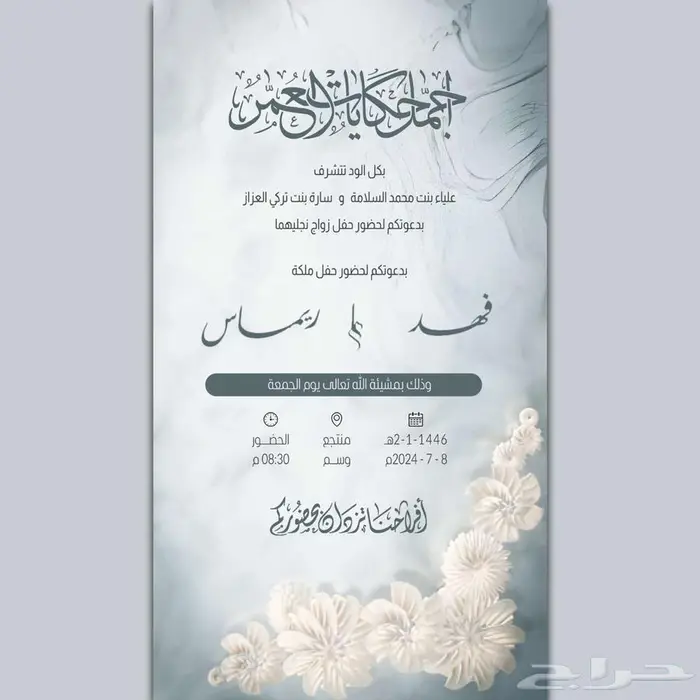 اجمل حكايات العمر
بكل الود تتشرف
علياء بنت محمد السلامة و سارة بنت تركي العزاز
بدعوتكم لحضور حفل زواج نجليهما
بدعوتكم لحضور حفل ملكة
فهد
ريماس
وذلك بمشيئة الله تعالى يوم الجمعة
2-1-1446هـ
8 - 7 - 2024م
منتجع
وسـم
الحضـور
08:30 م
أفراحنا تزدان بحضوركم
حراج